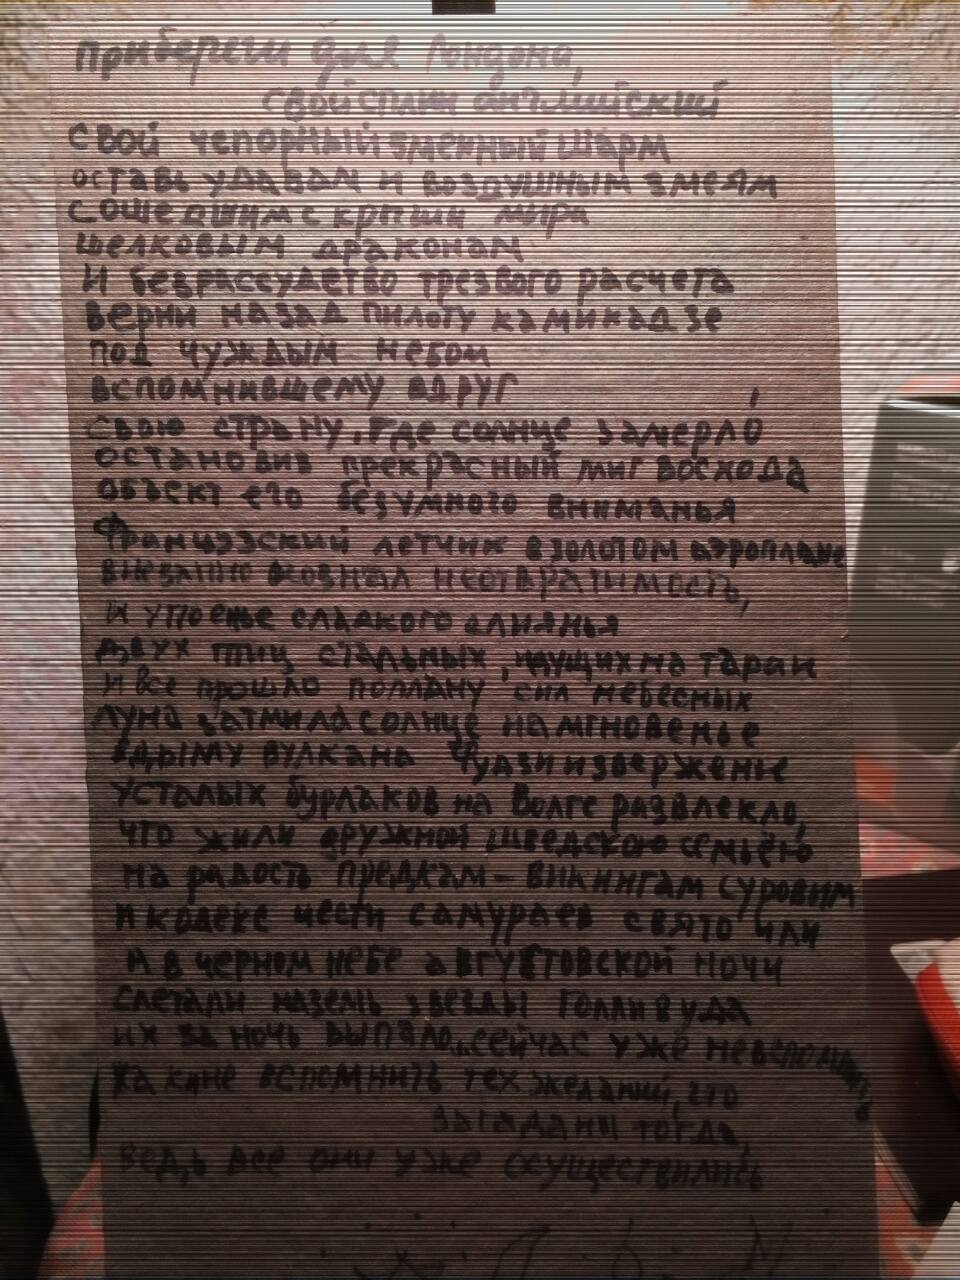 Прибереги для Лондона,
свой сплин английский
свой чопорный змеиный шарм
оставь удавам и воздушным змеям
сошедшим с крыши мира
шелковым драконам
И безрассудство трезвого расчета
верни назад пилоту камикадзе
под чуждым небом
вспомнившему вдруг
свою страну, где солнце замерло
остановив прекрасный миг восхода
объект его безумного вниманья
Французский летчик в золотом аэроплане
внезапно осознал неотвратимость,
и упоенье сладкого слиянья
двух птиц стальных, идущих на таран
и все прошло по плану сил небесных
луна затмила солнце на мгновенье
дыму вулкана Фудзи изверженье
усталых бурлаков на Волге развлекло,
что жили дружной шведскою семьёю
на радость предкам - викингам суровым
и кодекс чести самураев свято чли
и в черном небе августовской ночи
слетали наземь звезды Голливуда
их за ночь выпало... сейчас уже не вспомнить
как и не вспомнить тех желаний, что
загадали тогда,
ведь все они уже осуществились